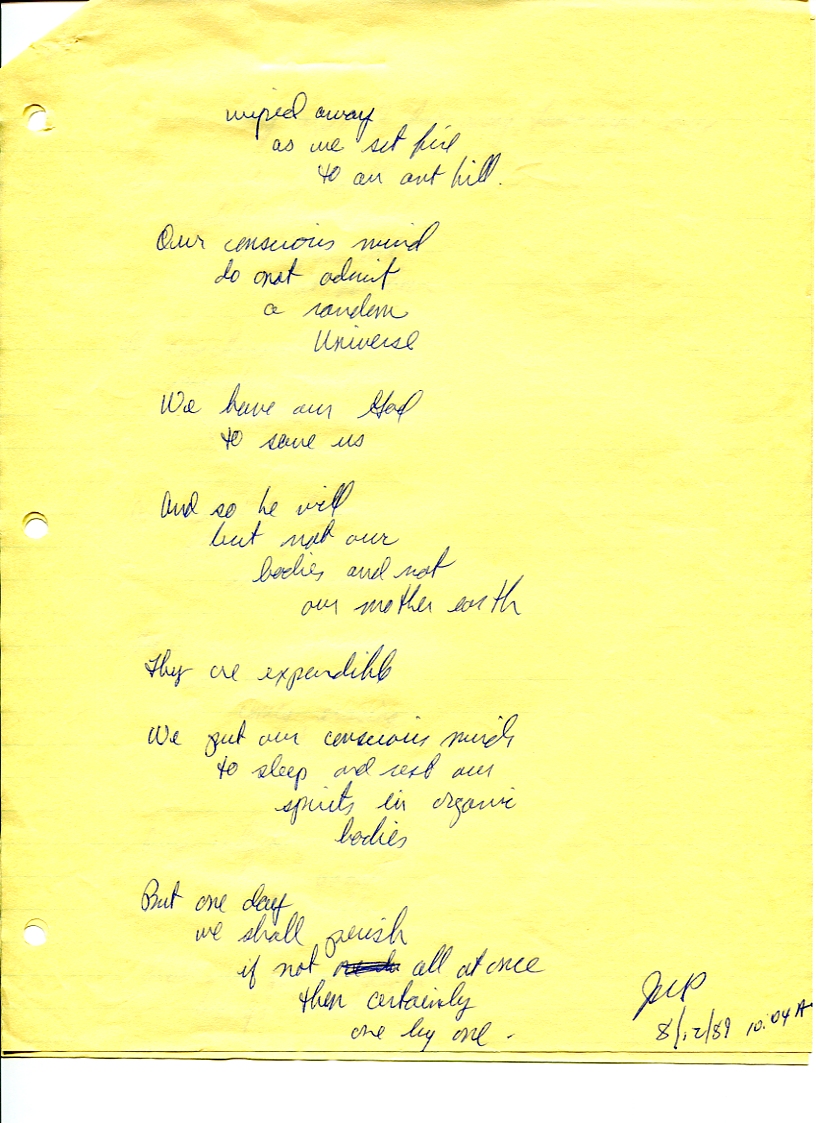 wiped away
as we set fire
to an ant hill.
Our conscious mind
do not admit
a random
Universe
We have our God
to save us
And so he will
but not our
bodies and not
our mother earth
They are expendible
We put our conscious minds
to sleep and rest our
spirits in organic
bodies
But one day
we shall perish
if not all at once
then certainly
one by one.
JWP
8/12/89 10:04 A